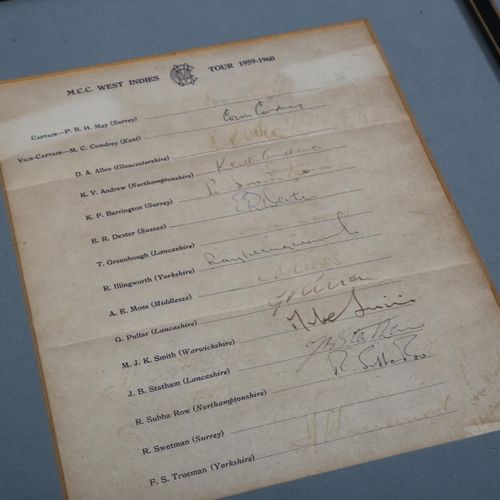 M.C.C. WEST INDIES TOUR 1959-1960
CAPTAIN—P. B. H. MAY (Surrey)
VICE-CAPTAIN—M. C. COWDREY (Kent) Colin Cowdrey
D. A. ALLEN (Gloucestershire)
K. V. ANDREW (Northamptonshire) Keith Andrew
K. F. BARRINGTON (Surrey)
E. R. DEXTER (Sussex) E R Dexter
T. GREENHOUGH (Lancashire)
R. ILLINGWORTH (Yorkshire) Ray Illingworth
A. E. MOSS (Middlesex)
G. PULLAR (Lancashire) G Pullar
M. J. K. SMITH (Warwickshire) Mike Smith
J. B. STATHAM (Lancashire) J B Statham
R. SUBBA ROW (Northamptonshire) R Subba Row
R. SWETMAN (Surrey)
F. S. TRUEMAN (Yorkshire)